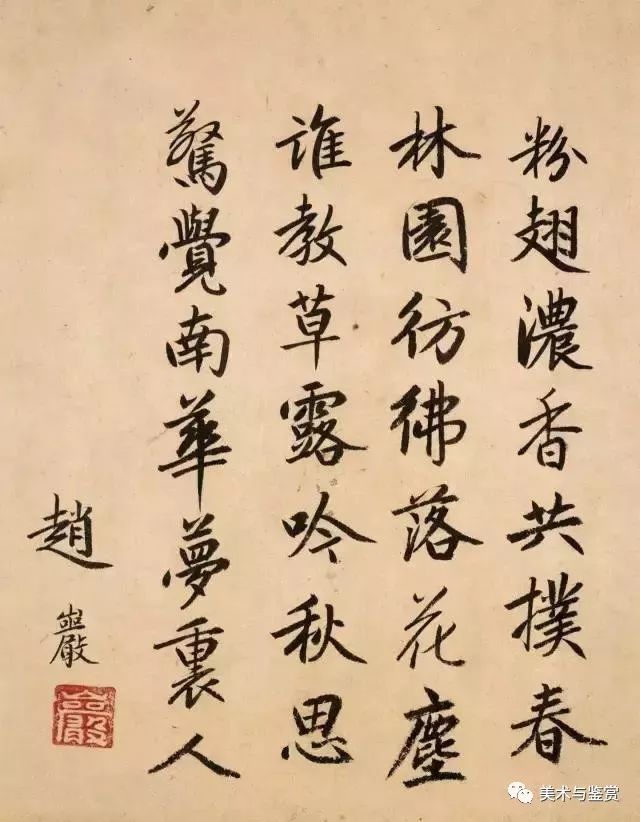 粉翅濃香共撲春
林園彷彿落花塵
誰教草露吟秋思
驚覺南華夢裏人
趙巖
美术与鉴赏